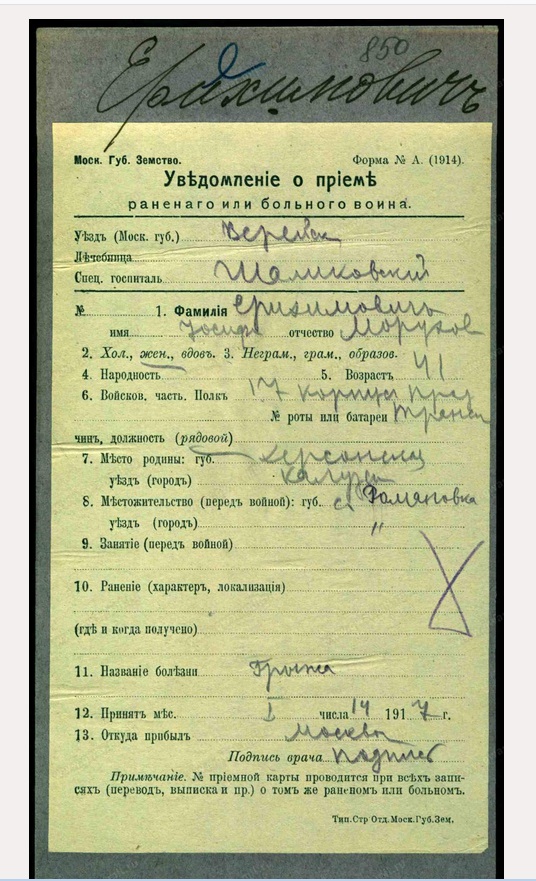 850
Ерихимовичъ
Моск. Губ. Земство. Форма № А. (1914).
Увѣдомленіе о пріемѣ
раненаго или больного воина.
Уѣздъ (Моск. губ.) Верейск
Лѣчебница
Спец. госпиталь Шаликовский
№ 1. Фамилія Ерихимовичъ
имя Іосифъ отчество Морухов
2. Хол., жен., вдовъ. 3. Неграм., грам., образов.
4. Народность 5. Возрастъ 41
6. Войсков. часть. Полкъ 17 корпуса
№ роты или батареи
чинъ, должность (рядовой)
7. Мѣсто родины: губ. Херсонец
уѣздъ (городъ)
8. Мѣстожительство (передъ войной): губ. с. Романовка
уѣздъ (городъ) "
9. Занятіе (передъ войной)
10. Раненіе (характеръ, локализація)
(гдѣ и когда получено)
11. Названіе болѣзни Грыжа
12. Принятъ мѣс. I числа 14 1917 г.
13. Откуда прибылъ Москва
Подпись врача подпись
Примѣчаніе. № пріемной карты проводится при всѣхъ запи-
сяхъ (переводъ, выписка и пр.) о томъ же раненомъ или больномъ.
Тип.Стр Отд.Моск.Губ.Зем.